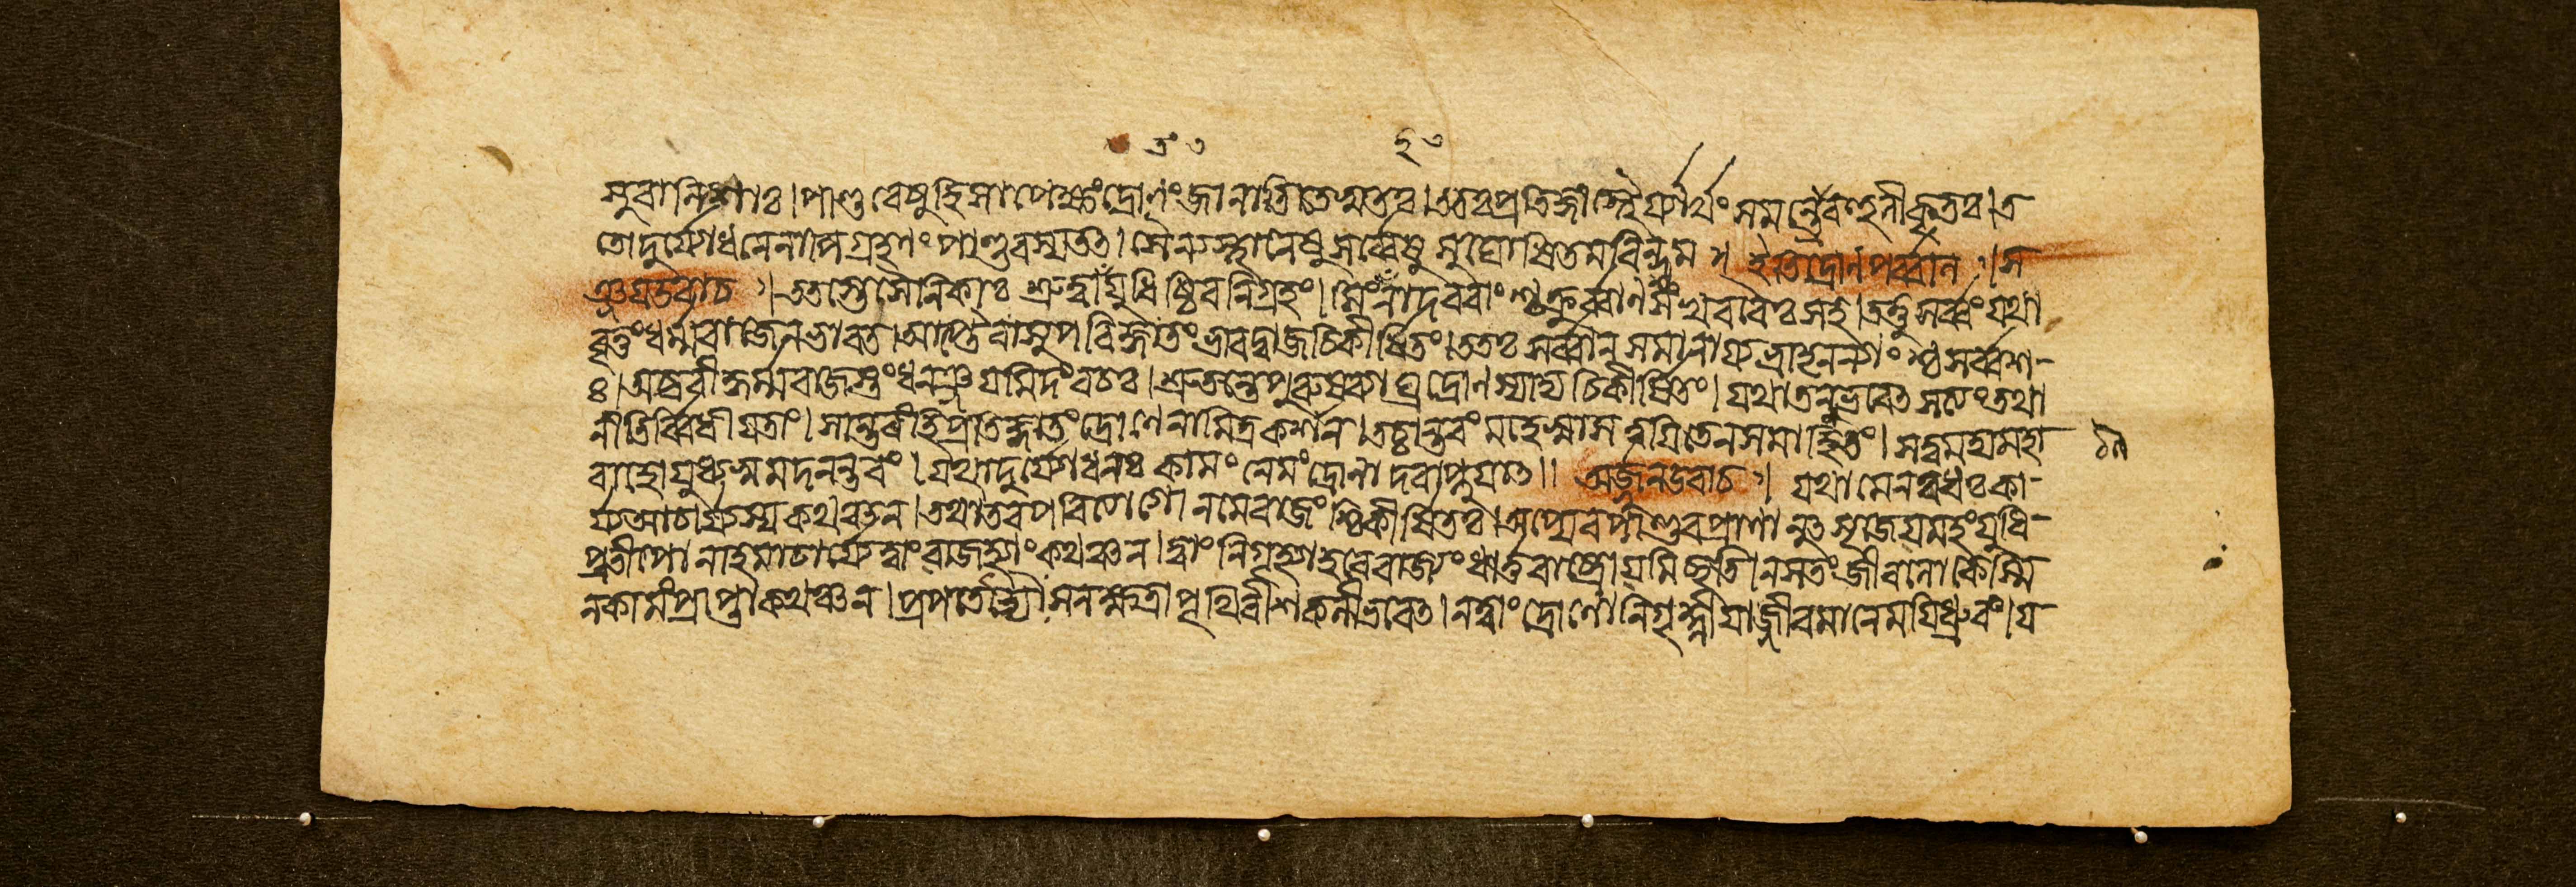 পাণ্ডবেষুহিসাপেক্ষংদ্রোণংজানাতিতেসুতঃ।ততঃপ্রতিজ্ঞাস্থৈর্য্যার্থংসমন্ত্রোবহুলীকৃতঃ।ত
তোদুর্য্যোধনেনাপিগ্রহণংপাণ্ডবস্যতত্।সৈন্যস্থানেষুসর্ব্বেষুসুঘোষিতমরিন্দম॥ইতিদ্রোণপর্ব্বনি।স
ঞ্জয়উবাচ।ততস্তেসৈনিকাঃশ্রুত্বাযুধিষ্ঠিরনিগ্রহং।সিংহনাদরবাংশ্চক্রুর্ব্বাণশংখরবৈঃসহ।তত্তুসর্ব্বংযথা
বৃত্তংধর্ম্মরাজেনভারত।আপ্তৈরাসুপরিজ্ঞাতংভারদ্বাজচিকীর্ষিতং।ততঃসর্ব্বান্সমানায্যভ্রাতৃনন্যাংশ্চসর্ব্বশ-
ঃ।অব্রবীদ্ধর্ম্মরাজস্তুধনঞ্জয়মিদংবচঃ।শ্রুতন্তেপুরুষব্যাঘ্রদ্রোণস্যাদ্যচিকীর্ষিতং।যথাতন্নভবেত্সত্যংতথা
নীতির্ব্বিধীয়তাং।সান্তরংহিপ্রতিজ্ঞাতংদ্রোণেনামিত্রকর্শন।তচ্চান্তরংমহেষ্বাসত্বয়িতেনসমাহিতং।সত্বমদ্যমহা
বাহোযুধ্যস্বমদনন্তরং।যথাদুর্য্যোধনঃকামংনেমংদ্রোনাদবাপ্নুয়াত্॥অর্জ্জুনউবাচ।যথামেনবধঃকা-
র্য্যআচার্য্যস্যকথঞ্চন।তথাতবপরিত্যাগোনমেরাজংশ্চিকীর্ষিতঃ।অপ্যেবংপাণ্ডবপ্রাণানুত্সৃজেয়মহংযুধি-
প্রতীপোনাহমাচার্য্যেত্বাংনজহ্যাংকথঞ্চন।ত্বাংনিগৃহ্যাহবেরাজ্যংধার্ত্তরাষ্ট্রোয়মিচ্ছতি।নসতংজীবলোকেস্মি
নকামংপ্রাপ্তাকথঞ্চন।প্রপতেদ্দ্যৌঃসনক্ষত্রাপৃথিবীশকলীভবেত্।নত্বাংদ্রোণোনিগৃহ্নীয়াজ্জীবমানেময়িধ্রুবং।য-